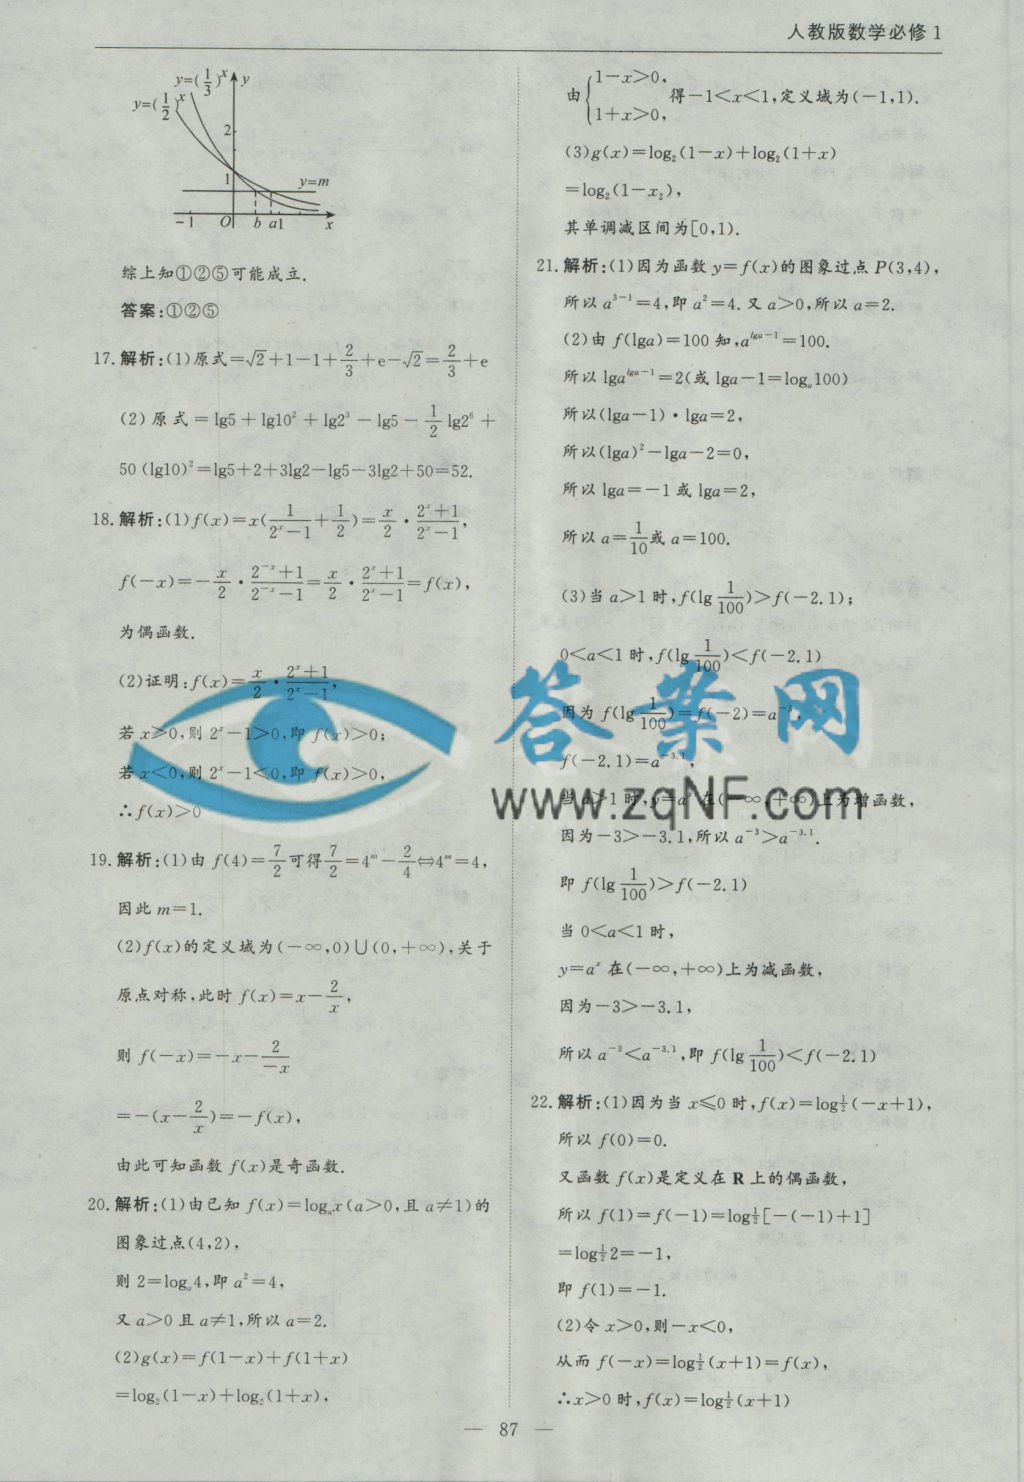 人教版数学必修1
y=(1/3)^x
y
y=(1/2)^x
2
1
y=m
-1 O b a1 x
综上知①②⑤可能成立.
答案:①②⑤
17.解析:(1)原式=√2+1-1+2/3+e-√2=2/3+e
(2)原式=lg5+lg10²+lg2³-lg5-1/2lg2⁶+
50(lg10)²=lg5+2+3lg2-lg5-3lg2+50=52.
18.解析:(1)f(x)=x(1/(2^x-1)+1/2)=x/2·(2^x+1)/(2^x-1),
f(-x)=-x/2·(2^-x+1)/(2^-x-1)=x/2·(2^x+1)/(2^x-1)=f(x),
为偶函数.
(2)证明:f(x)=x/2·(2^x+1)/(2^x-1),
若x>0,则2^x-1>0,即f(x)>0;
若x<0,则2^x-1<0,即f(x)>0,
∴f(x)>0
19.解析:(1)由f(4)=7/2可得7/2=4^m-2/4⇔4^m=4,
因此m=1.
(2)f(x)的定义域为(-∞,0)∪(0,+∞),关于
原点对称,此时f(x)=x-2/x,
则f(-x)=-x-2/(-x)
=-(x-2/x)=-f(x),
由此可知函数f(x)是奇函数.
20.解析:(1)由已知f(x)=logₐx(a>0,且a≠1)的
图象过点(4,2),
则2=logₐ4,即a²=4,
又a>0且a≠1,所以a=2.
(2)g(x)=f(1-x)+f(1+x)
=log₂(1-x)+log₂(1+x),
由{1-x>0, 1+x>0, 得-1<x<1,定义域为(-1,1).
(3)g(x)=log₂(1-x)+log₂(1+x)
=log₂(1-x₂),
其单调减区间为[0,1).
21.解析:(1)因为函数y=f(x)的图象过点P(3,4),
所以a^(3-1)=4,即a²=4.又a>0,所以a=2.
(2)由f(lga)=100知,a^(lga-1)=100.
所以lga^(lga-1)=2(或lga-1=logₐ100)
所以(lga-1)·lga=2,
所以(lga)²-lga-2=0,
所以lga=-1或lga=2,
所以a=1/10或a=100.
(3)当a>1时,f(lg1/100)>f(-2.1);
0<a<1时,f(lg1/100)<f(-2.1)
因为f(lg1/100)=f(-2)=a^-3,
f(-2.1)=a^-3.1,
当a>1时,y=a^x在(-∞,+∞)上为增函数,
因为-3>-3.1,所以a^-3>a^-3.1.
即f(lg1/100)>f(-2.1)
当0<a<1时,
y=a^x在(-∞,+∞)上为减函数,
因为-3>-3.1,
所以a^-3<a^-3.1,即f(lg1/100)<f(-2.1)
22.解析:(1)因为当x≤0时,f(x)=log½(-x+1),
所以f(0)=0.
又函数f(x)是定义在R上的偶函数,
所以f(1)=f(-1)=log½[-(-1)+1]
=log½2=-1,
即f(1)=-1.
(2)令x>0,则-x<0,
从而f(-x)=log½(x+1)=f(x),
∴x>0时,f(x)=log½(x+1)
— 87 —
答案网
www.zqNF.com